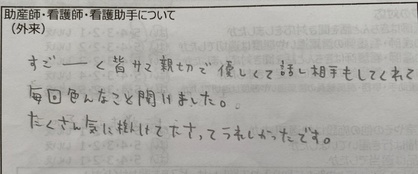 助産師・看護師・看護助手について
(外来)
すごーく皆サマ親切で優しくて話し相手もしてくれて
毎回色んなこと聞けました。
たくさん気に掛けて下さってうれしかったです。